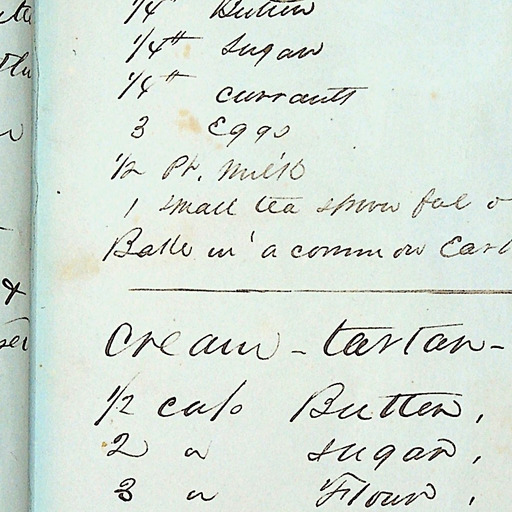 1/4 lb Butter
1/4 lb Sugar
1/4 lb currants
3 Eggs
1/2 Pt. Milk
1 small tea spoon ful
Bake in a common
Cream-tartar-
1/2 cup Butter,
2 " sugar,
3 " Flour,